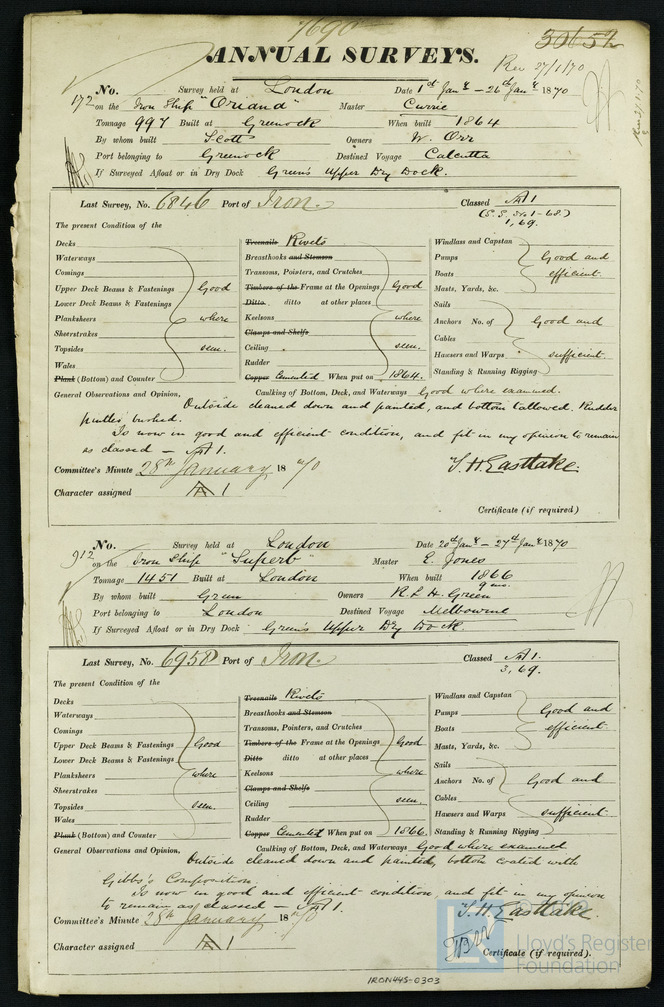 7690
30652
ANNUAL SURVEYS.
Rec 27/1/70
No. Survey held at London Date 1st Jany - 26th Jany 1870
172 on the Iron Ship "Oriand" Master Currie
Tonnage 997 Built at Greenock When built 1864
By whom built Scott Owners W. Orr
Port belonging to Greenock Destined Voyage Calcutta
If Surveyed Afloat or in Dry Dock Green's Upper Dry Dock.
Last Survey, No. 6846 Port of Iron. Classed A 1
(S.S. No. 1-68)
1,69.
The present Condition of the
Decks
Waterways
Comings
Upper Deck Beams & Fastenings Good
Lower Deck Beams & Fastenings
Planksheers where
Sheerstrakes
Topsides seen.
Wales
Plank (Bottom) and Counter
Treenails Rivets
Breasthooks and Stemson
Transoms, Pointers, and Crutches
Timbers of the Frame at the Openings Good
Ditto ditto at other places
Keelsons where
Clamps and Shelfs
Ceiling seen.
Rudder
Copper Cemented When put on 1864.
Windlass and Capstan
Pumps Good and
Boats efficient
Masts, Yards, &c.
Sails
Anchors No. of Good and
Cables
Hawsers and Warps sufficient.
Standing & Running Rigging
General Observations and Opinion, Caulking of Bottom, Deck, and Waterways Good where examined.
Outside cleaned down and painted, and bottom tallowed. Rudder
pintles bushed.
Is now in good and efficient condition, and fit in my opinion to remain
as classed - A 1.
Committee's Minute 28th January 1870
T. H. Eastlake.
Character assigned A 1
Certificate (if required)
No. Survey held at London Date 20th Jany - 27th Jany 1870
912 on the Iron Ship "Superb" Master E. Jones
Tonnage 1451 Built at London When built 1866
9 mo.
By whom built Green Owners R. & H. Green
Port belonging to London Destined Voyage Melbourne
If Surveyed Afloat or in Dry Dock Green's Upper Dry Dock.
Last Survey, No. 6958 Port of Iron. Classed A 1.
3,69.
The present Condition of the
Decks
Waterways
Comings
Upper Deck Beams & Fastenings Good
Lower Deck Beams & Fastenings
Planksheers where
Sheerstrakes
Topsides seen.
Wales
Plank (Bottom) and Counter
Treenails Rivets
Breasthooks and Stemson
Transoms, Pointers, and Crutches
Timbers of the Frame at the Openings Good
Ditto ditto at other places
Keelsons where
Clamps and Shelfs
Ceiling seen.
Rudder
Copper Cemented When put on 1866.
Windlass and Capstan
Pumps Good and
Boats efficient
Masts, Yards, &c.
Sails
Anchors No. of Good and
Cables
Hawsers and Warps sufficient.
Standing & Running Rigging
General Observations and Opinion, Caulking of Bottom, Deck, and Waterways Good where examined
Outside cleaned down and painted, bottom coated with
Gibbs's Composition.
Is now in good and efficient condition, and fit in my opinion
to remain as classed - A 1.
Committee's Minute 28th January 1870
T. H. Eastlake.
Character assigned A 1
Certificate (if required)
Lloyd's Register
Foundation
IRON445-0303